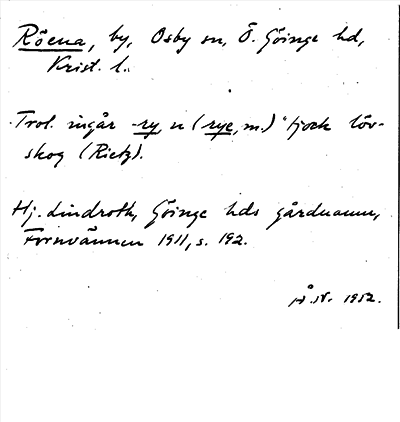 Röena, by, Osby sn, Ö. Göinge hd,
Krist. l.
Trol. ingår -ry, n (rye, m.) "tjock löv-
skog (Rietz).
Hj. Lindroth, Göinge hds gårdnamn,
Fornvännen 1911, s. 192.
1952.